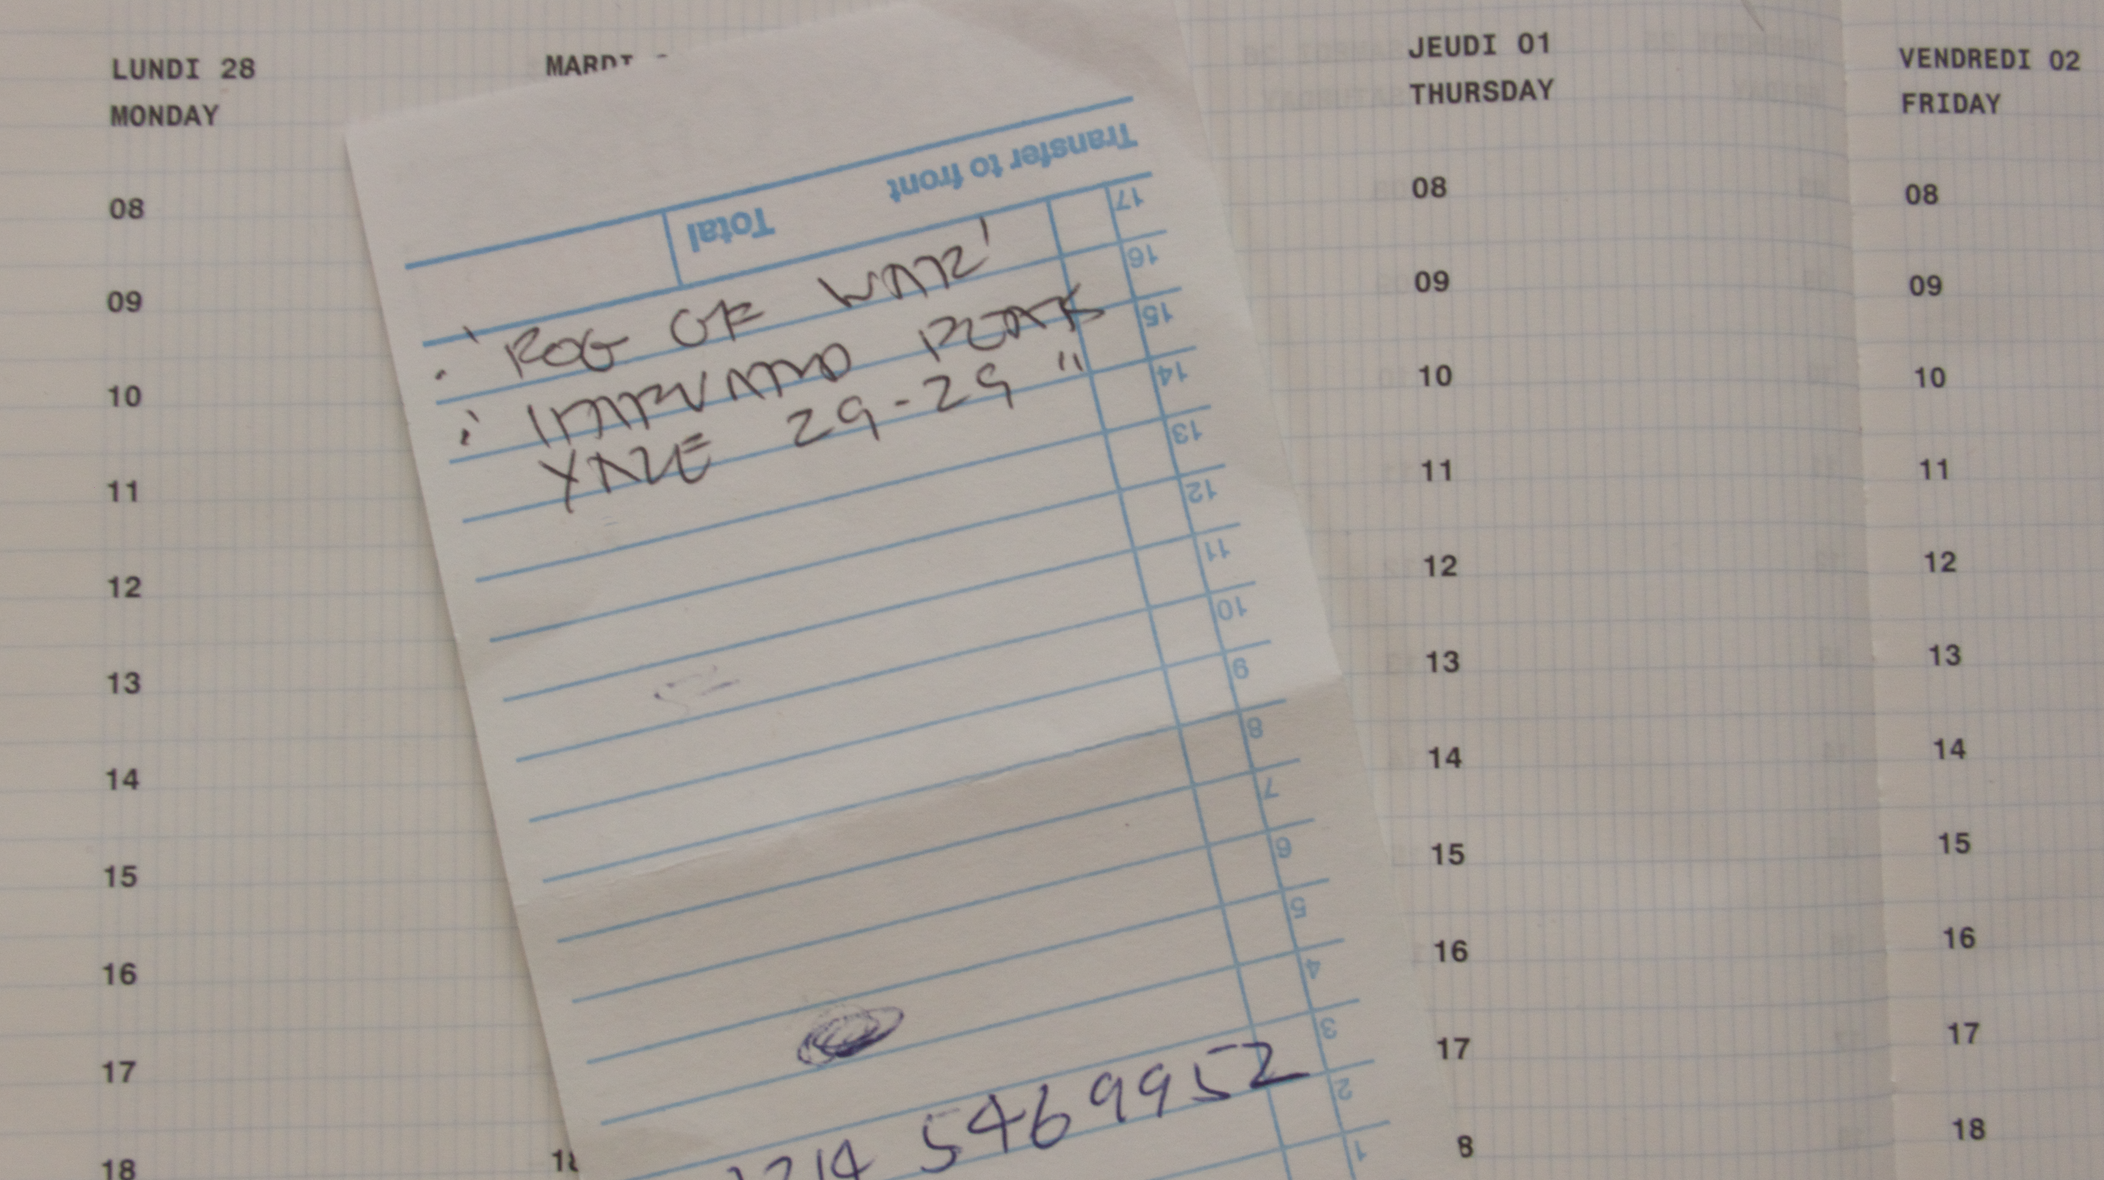 LUNDI 28
MONDAY
08
09
10
11
12
13
14
15
16
17
18
MARDI
Transfer to front
Total
17
16
15
14
13
12
11
10
9
8
7
6
5
4
3
2
1
'FOG OF WAR'
HARVARD BEATS
YALE 29-29"
1214 5469952
JEUDI 01
THURSDAY
08
09
10
11
12
13
14
15
16
17
8
VENDREDI 02
FRIDAY
08
09
10
11
12
13
14
15
16
17
18